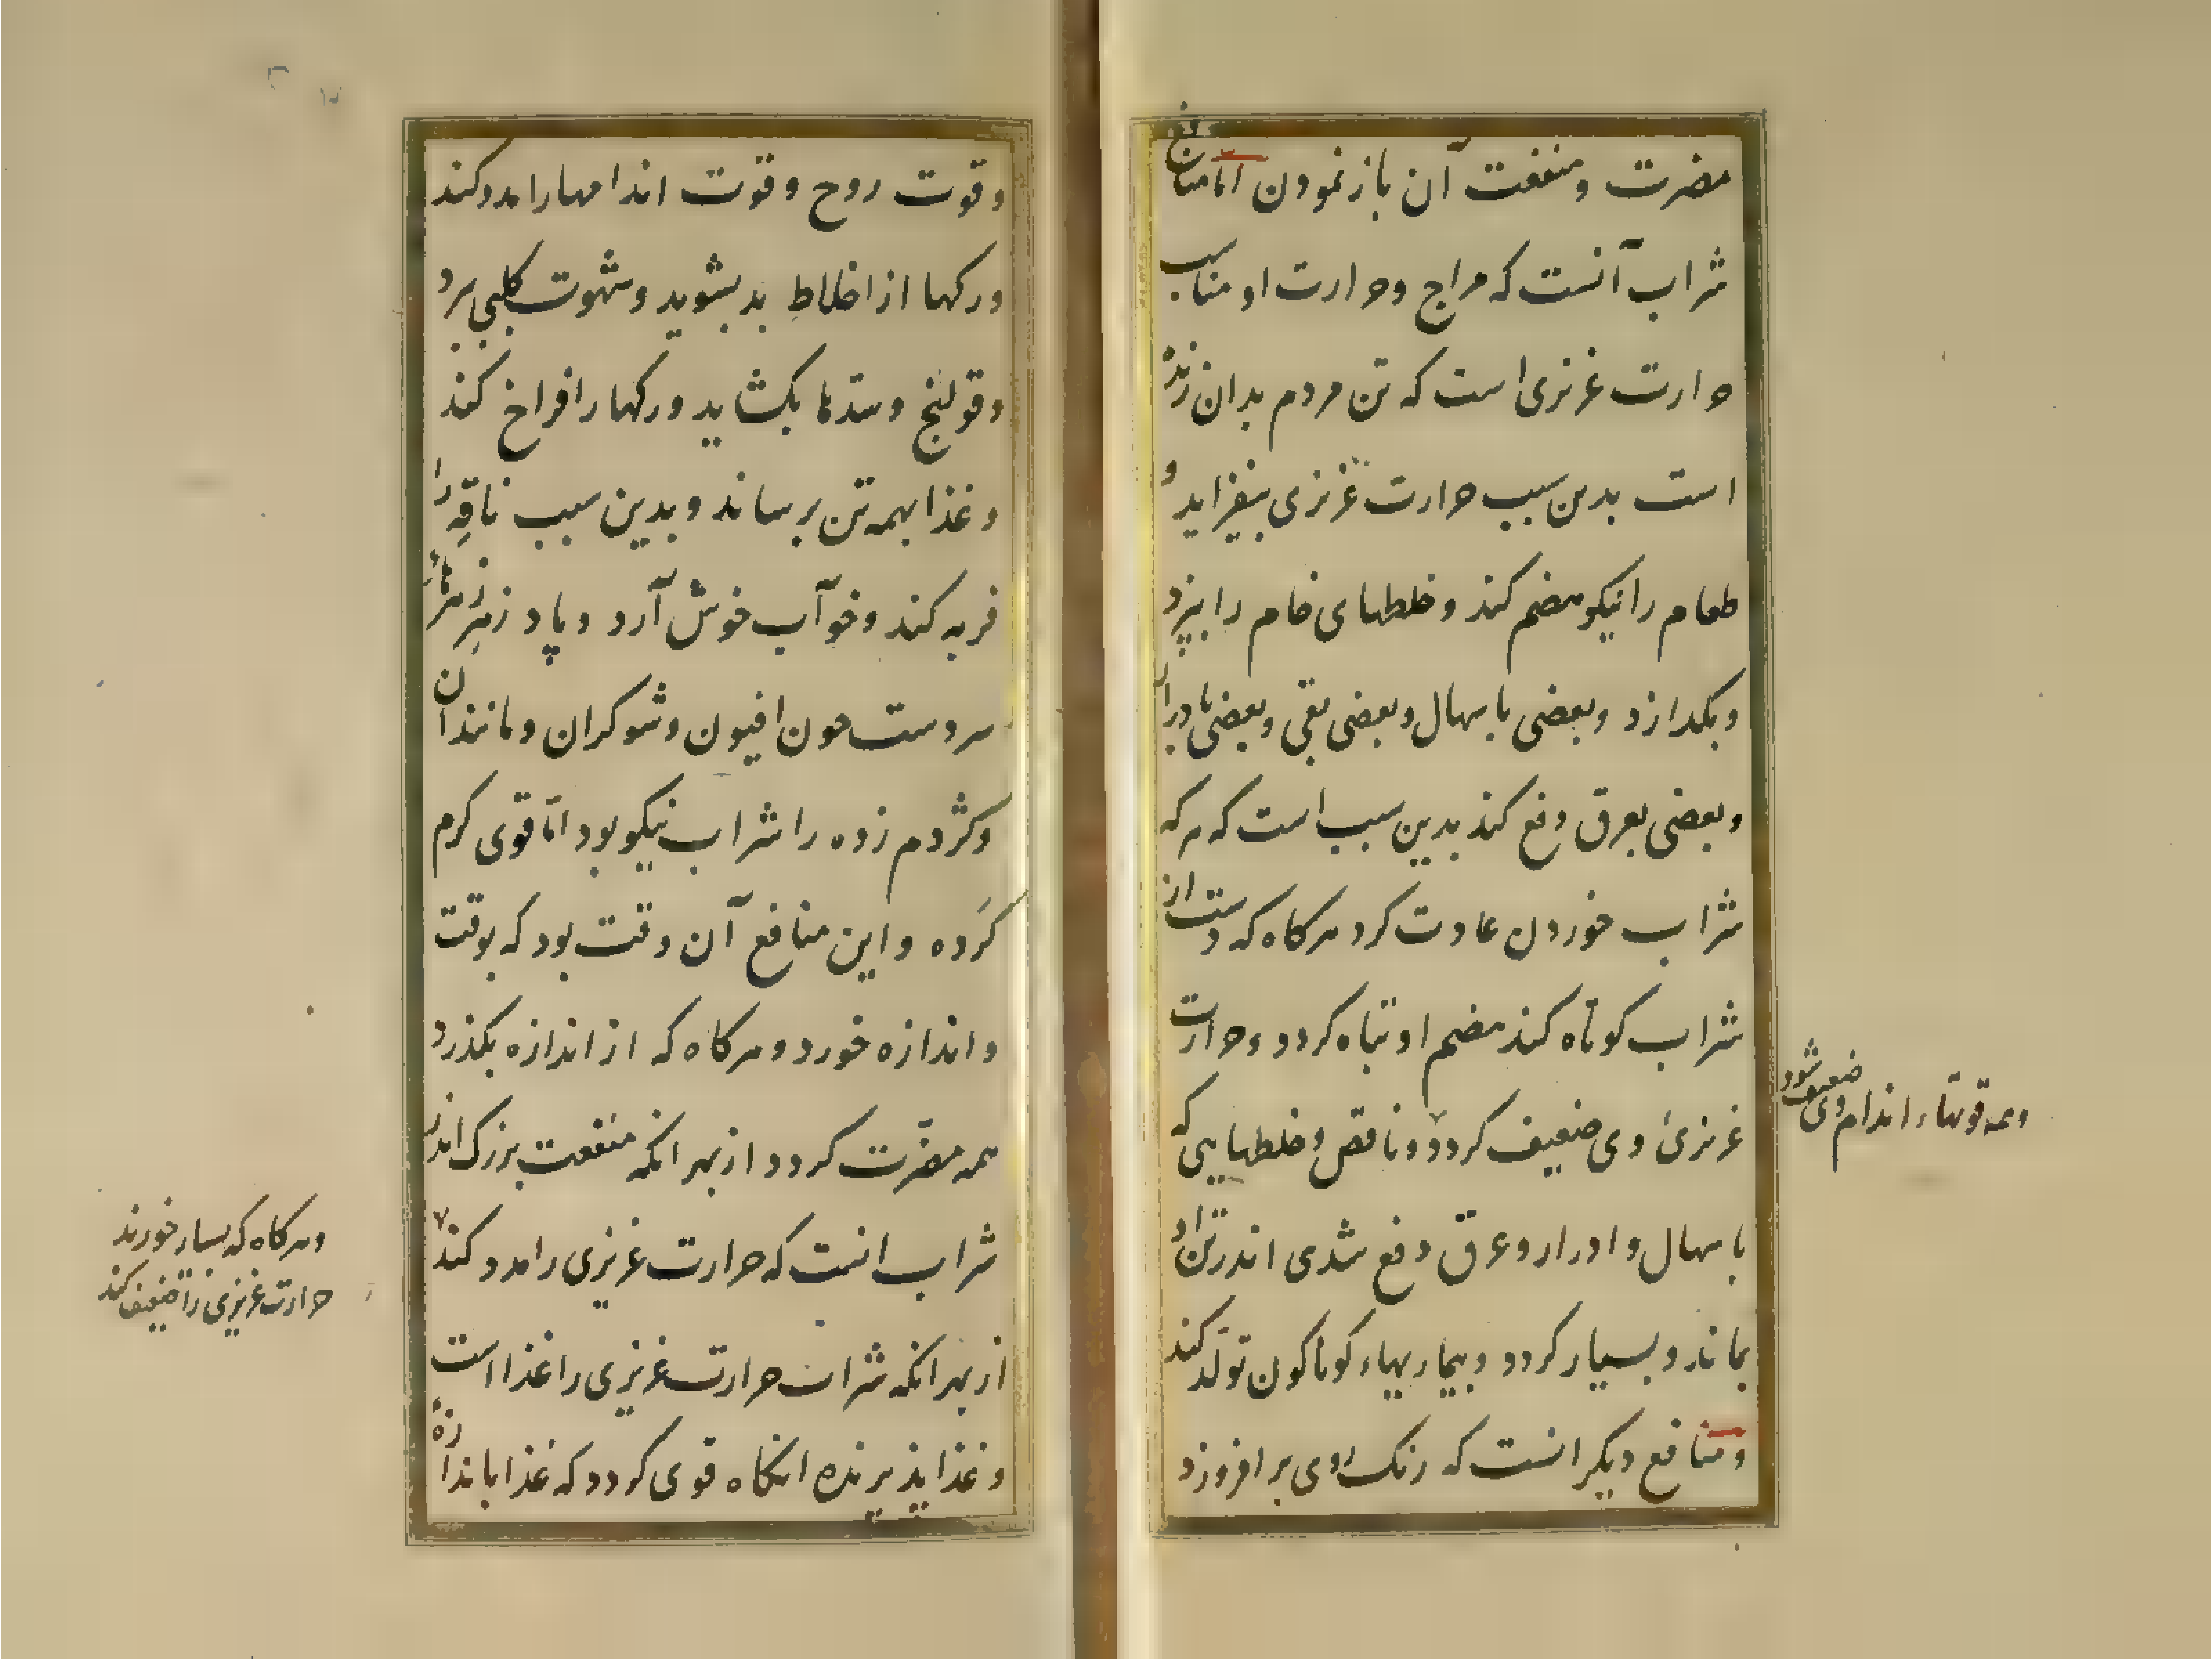 مضرت و منفعت آن باز نمودن اما منافع
شراب آنست که مزاج و حرارت او مناسب
حرارت غریزی است که تن مردم بدان زنده
است بدین سبب حرارت غریزی بیفزاید و
طعام را نیکو هضم کند و خلطهای خام را بپزد
و بکدازد و بعضی باسهال و بعضی بقی و بعضی بادرار
و بعضی بعرق دفع کند بدین سبب است که هر که
شراب خوردن عادت کرد هر کاه که دست از
شراب کوتاه کند هضم او تباه کردد و حرارت
غریزی وی ضعیف کردد و ناقص و خلطهایی که
باسهال و ادرار و عرق دفع شدی اندر تن او
بماند و بسیار کردد و بیماریهاء کوناکون تولد کند
و منافع دیکر انست که رنک روی برافروزد
و همه قوتهاء اندام وی ضعیف شود
و قوت روح و قوت اندامها را مدد کند
و رکها از اخلاط بد بشوید و شهوت کلبی ببرد
و قولنج و سدّها بکشاید و رکها را فراخ کند
و غذا بهمه تن برساند و بدین سبب ناقه را
فربه کند و خوآب خوش آرد و پادزهر زهرهاء
سردست چون افیون و شوکران و مانند ان
و کژدم زده را شراب نیکو بود اما قوی کرم
کرده و این منافع آن وقت بود که بوقت
و اندازه خورد و هر کاه که از اندازه بکذرد
همه مضرّت کردد از بهر انکه منفعت بزرک اندر
شراب انست که حرارت غریزی را مدد کند
از بهر انکه شراب حرارت غریزی را غذا است
و غذا پذیرنده انکاه قوی کردد که غذا باندازه
و هر کاه که بسیار خورند
حرارت غریزی را ضعیف کند